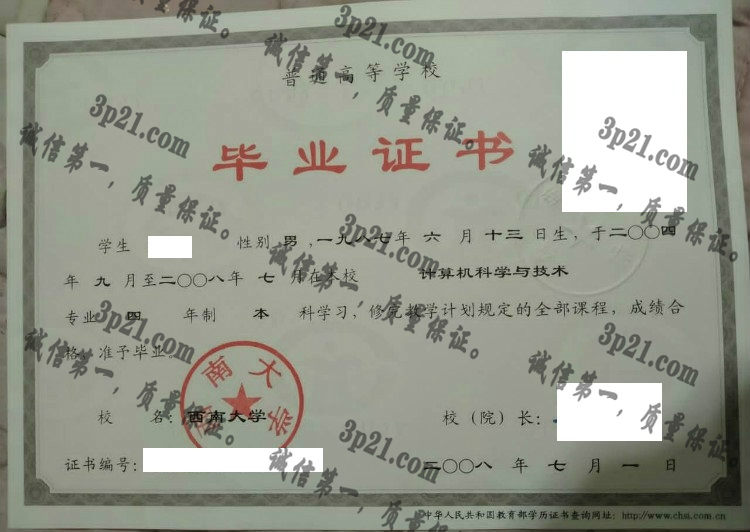 普通高等学校
毕业证书
学生 性别 男 ,一九八七年 六 月 十三 日生, 于二〇〇四
年 九 月至二〇〇八年 七 月在本校 计算机科学与技术
专业 四 年制 本 科学习, 修完教学计划规定的全部课程, 成绩合
格, 准予毕业。
校 名: 西南大学
校（院）长:
证书编号:
二〇〇八 年 七 月 一 日
中华人民共和国教育部学历证书查询网址: http://www.chsi.com.cn
西南大学
3p21.com
诚信第一，质量保证。
3p21.com
诚信第一，质量保证。
3p21.com
诚信第一，质量保证。
3p21.com
诚信第一，质量保证。
3p21.com
诚信第一，质量保证。
3p21.com
诚信第一，质量保证。
3p21.com
诚信第一，质量保证。
3p21.com
诚信第一，质量保证。